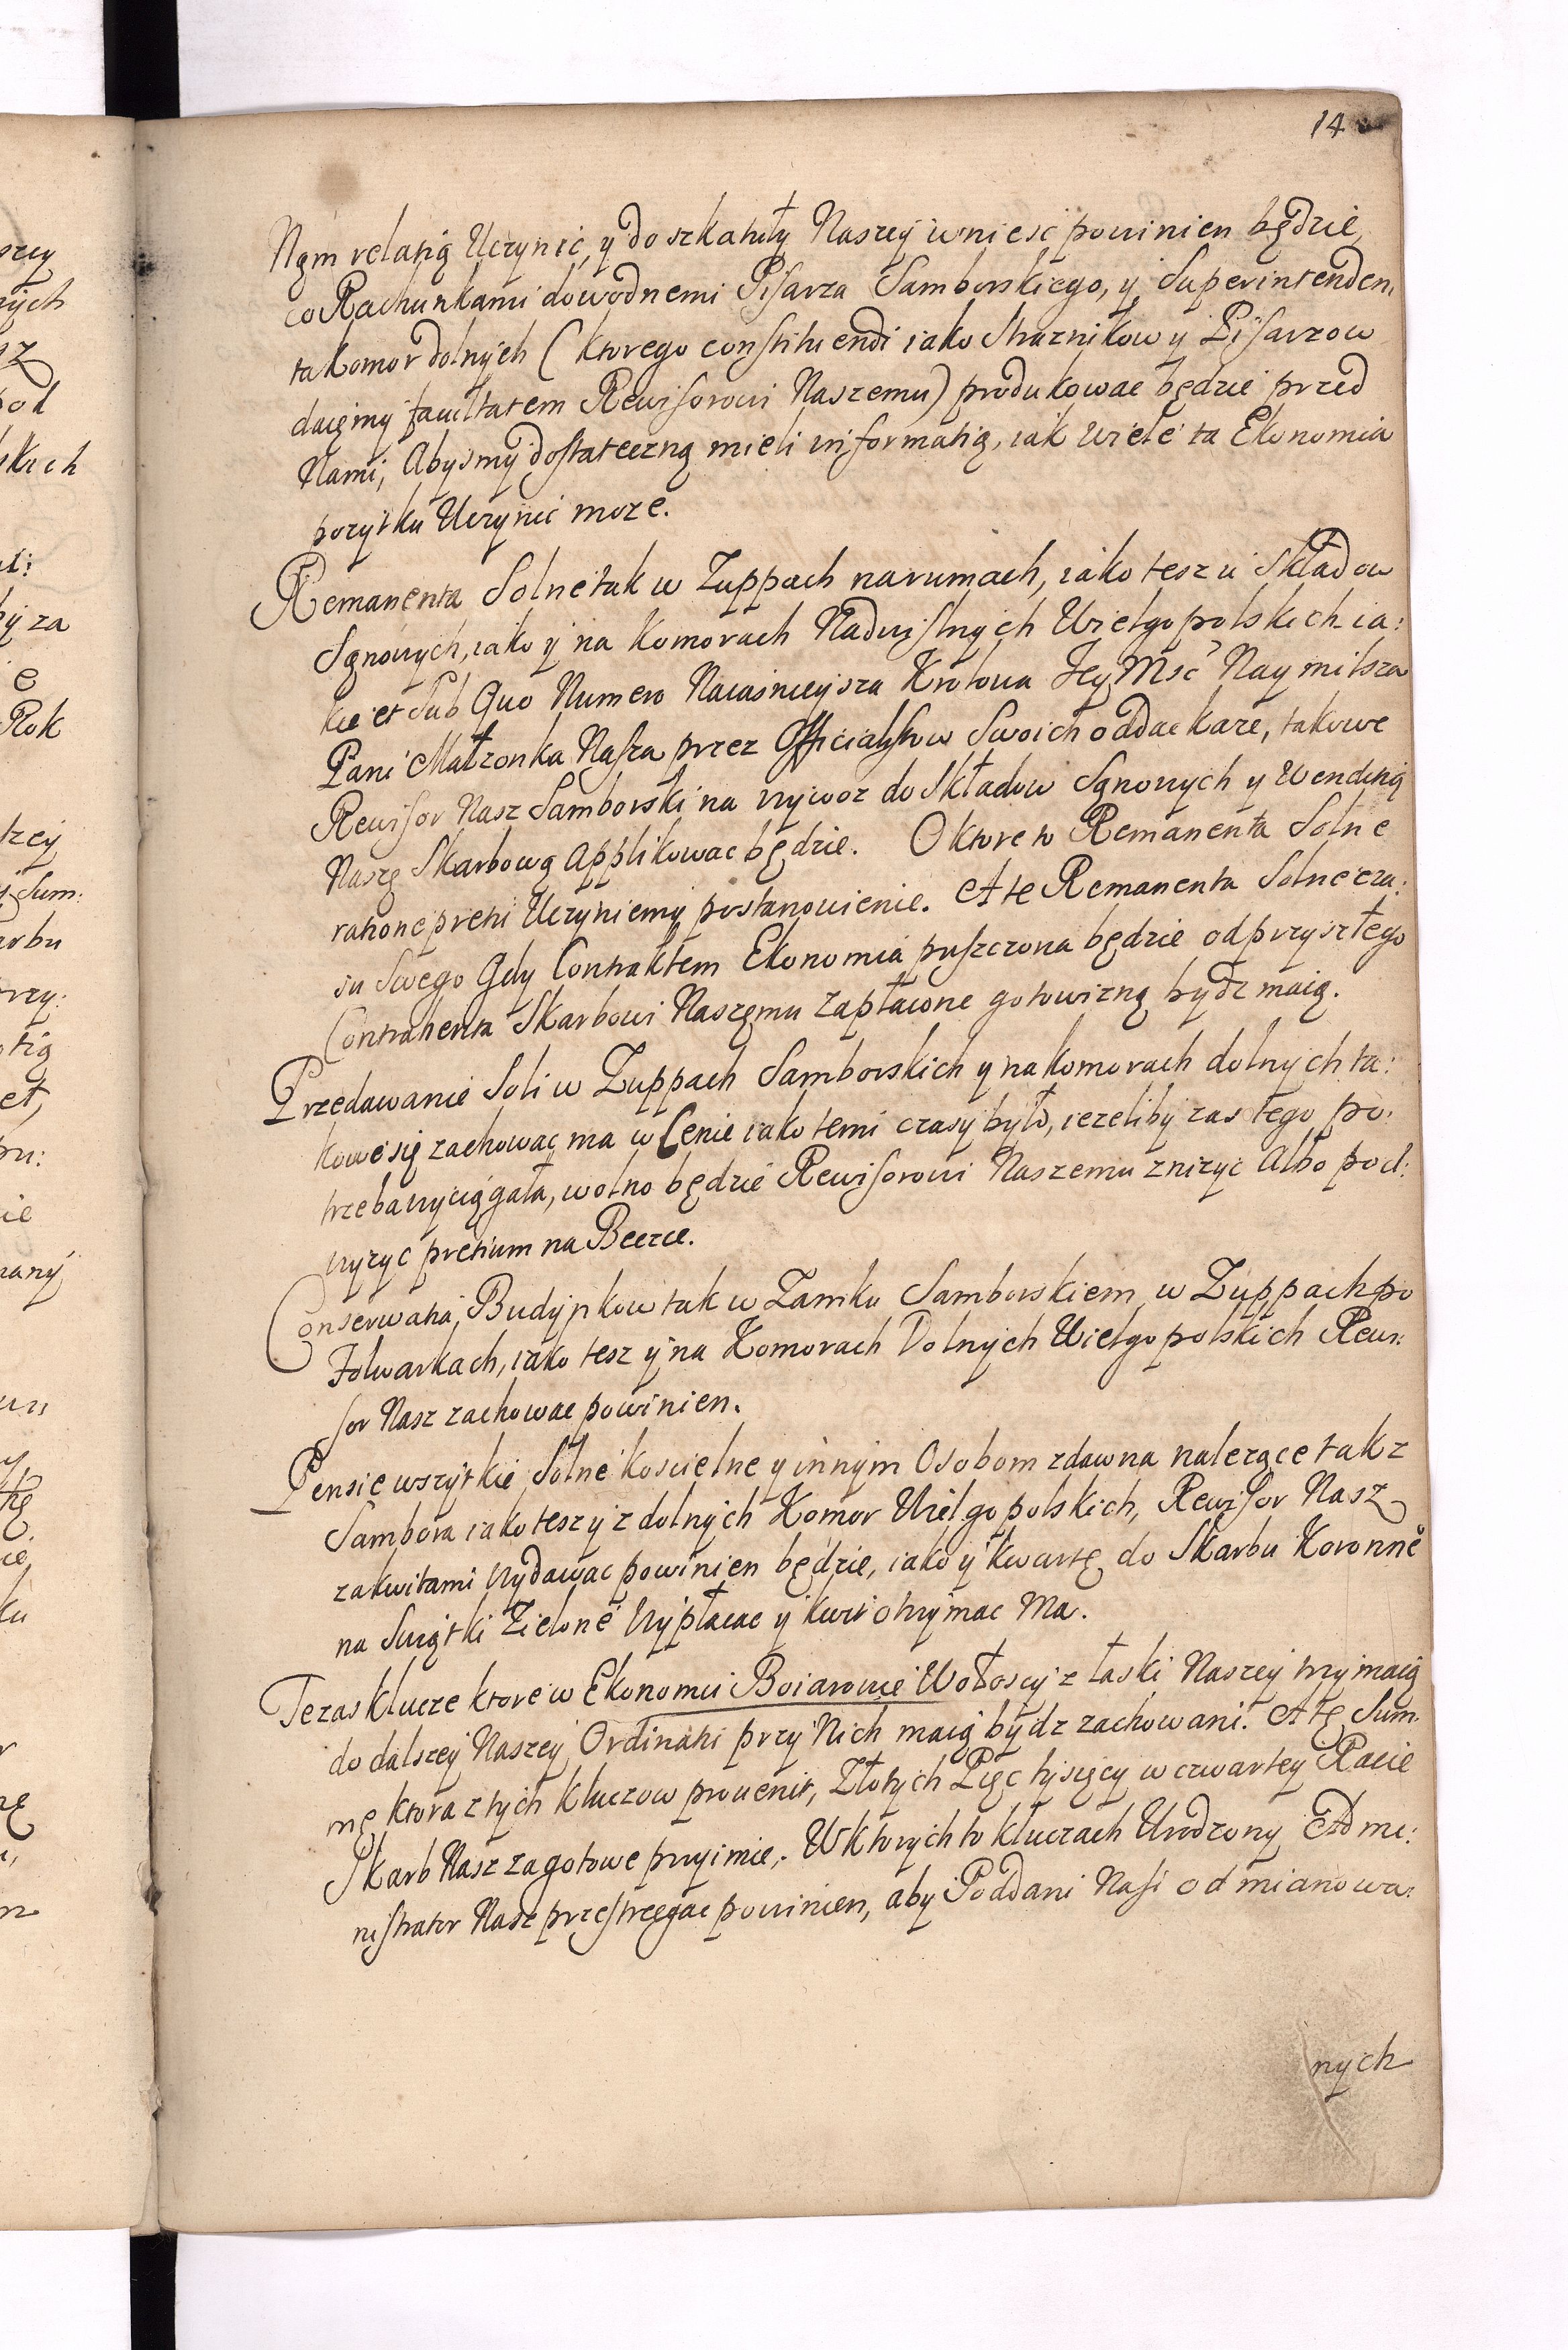 14
Nąm relatią Uczynić, y do szkatuły Naszey wniesć powinien będzie,
co Rachunkami dowodnemi Pisarza Samborskiego, y Superintenden,
ta komor dolnych (ktorego constituendi iako Strażnikow y Pisarzow
daięmy facultatem Rewisorowi Naszemu) produkowac będzie przed
Nami, Abysmy dostateczną mieli informatią, iak wiele ta Ekonomia
pozytku Uczynić może.
Remanenta Solne tak w Zuppach na rumach, iako tesz u Składow
Sąnowych, iako y na Komorach Nadwislnych Wielgopolskich ia:
kie et Sub Quo Numero Naiasnieysza Krolowa Jey Msć Naymilsza
Pani Małzonka Nasza przez Officialistow Swoich oddac każe, takowe
Rewisor Nasz Samborski na wywoz do Składow Sąnowych y Wenditią
Naszę Skarbową Applikowac będzie. O ktore to Remanenta Solne
ratione pretii Uczyniemy postanowienie. A te Remanenta Solne cza:
su Swego Gdy Contraktem Ekonomia puszczona będzie od przyszłego
Contrahenta Skarbowi Naszęmu zapłacone gotowizną bydz maią.
Przedawanie Soli w Zuppach Samborskich y na komorach dolnych ta:
kowe się zachowac ma w Cenie iako temi czasy było, ieżeliby zas tego po:
trzeba wyciągała, wolno będzie Rewisorowi Naszemu znizyc Albo pod:
wyzyc pretium na Beczce.
Conserwatia, Budynkow tak w Zamku Samborskiem, w Zuppach po
Folwarkach, iako tesz y na Komorach Dolnych Wielgopolskich Rewi:
sor Nasz zachowac powinien.
Pensie wszytkie Solne koscielne y innym Osobom zdawna należące tak z
Sambora iako tesz y z dolnych Komor Wielgopolskich, Rewisor Nasz
za kwitami Wydawac powinien będzie, iako y kwartę do Skarbu Koronnė
na Swiątki Zielone Wypłacac y kwit otrzymac Ma.
Te zas klucze ktore w Ekonomii Boiarowie Wołoscy z łaski Naszey trzymaią
do dalszey Naszey Ordinatii przy Nich maią bydz zachowani. A tę Sum
mę ktora z tych kluczow prouenit, Złotych Pięc tysięcy w czwartey Racie
Skarb Nasz za gotowe przyimie. W ktorych to kluczach Urodzony Admi:
nistrator Nasz przestrzegac powinien, aby Poddani Nasi od mianowa:
nych